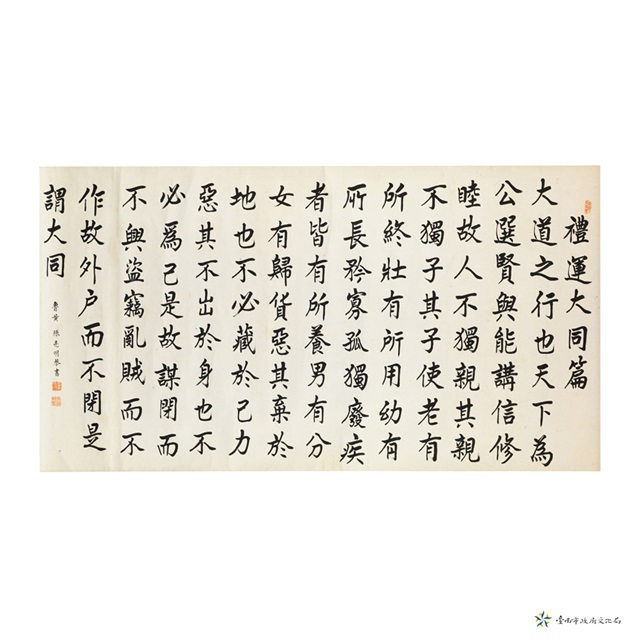 禮運大同篇
大道之行也天下為
公選賢與能講信修
睦故人不獨親其親
不獨子其子使老有
所終壯有所用幼有
所長矜寡孤獨廢疾
者皆有所養男有分
女有歸貨惡其棄於
地也不必藏於己力
惡其不出於身也不
必爲己是故謀閉而
不興盜竊亂賊而不
作故外户而不閉是
謂大同
書
臺南市政府文化局